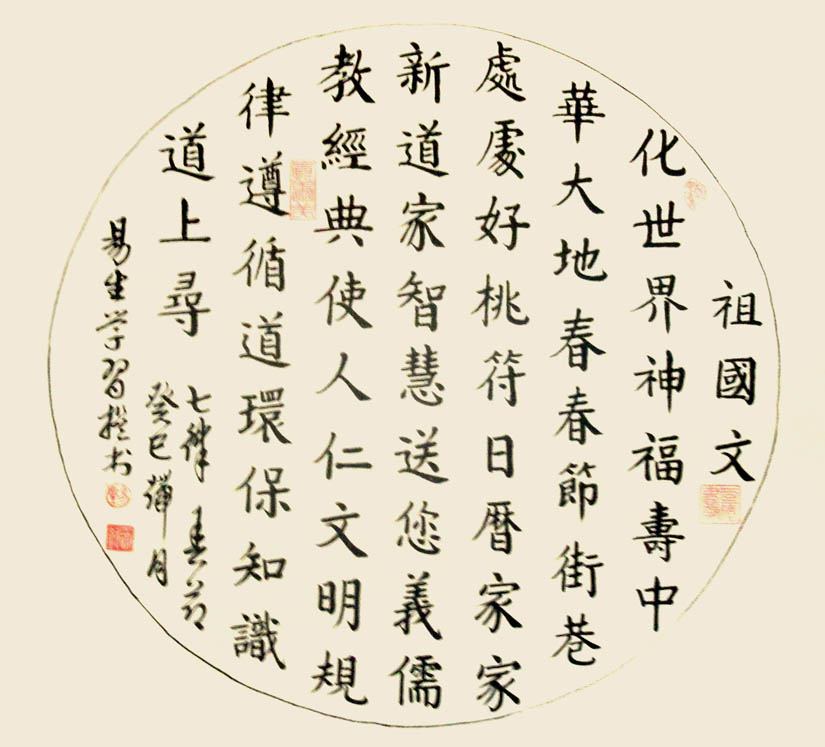 祖國文
化世界神福壽中
華大地春春節街巷
處處好桃符日曆家家
新道家智慧送您義儒
教經典使人仁文明規
律遵循道環保知識
道上尋
七律 春節
癸巳蟬月
易生学習撰书